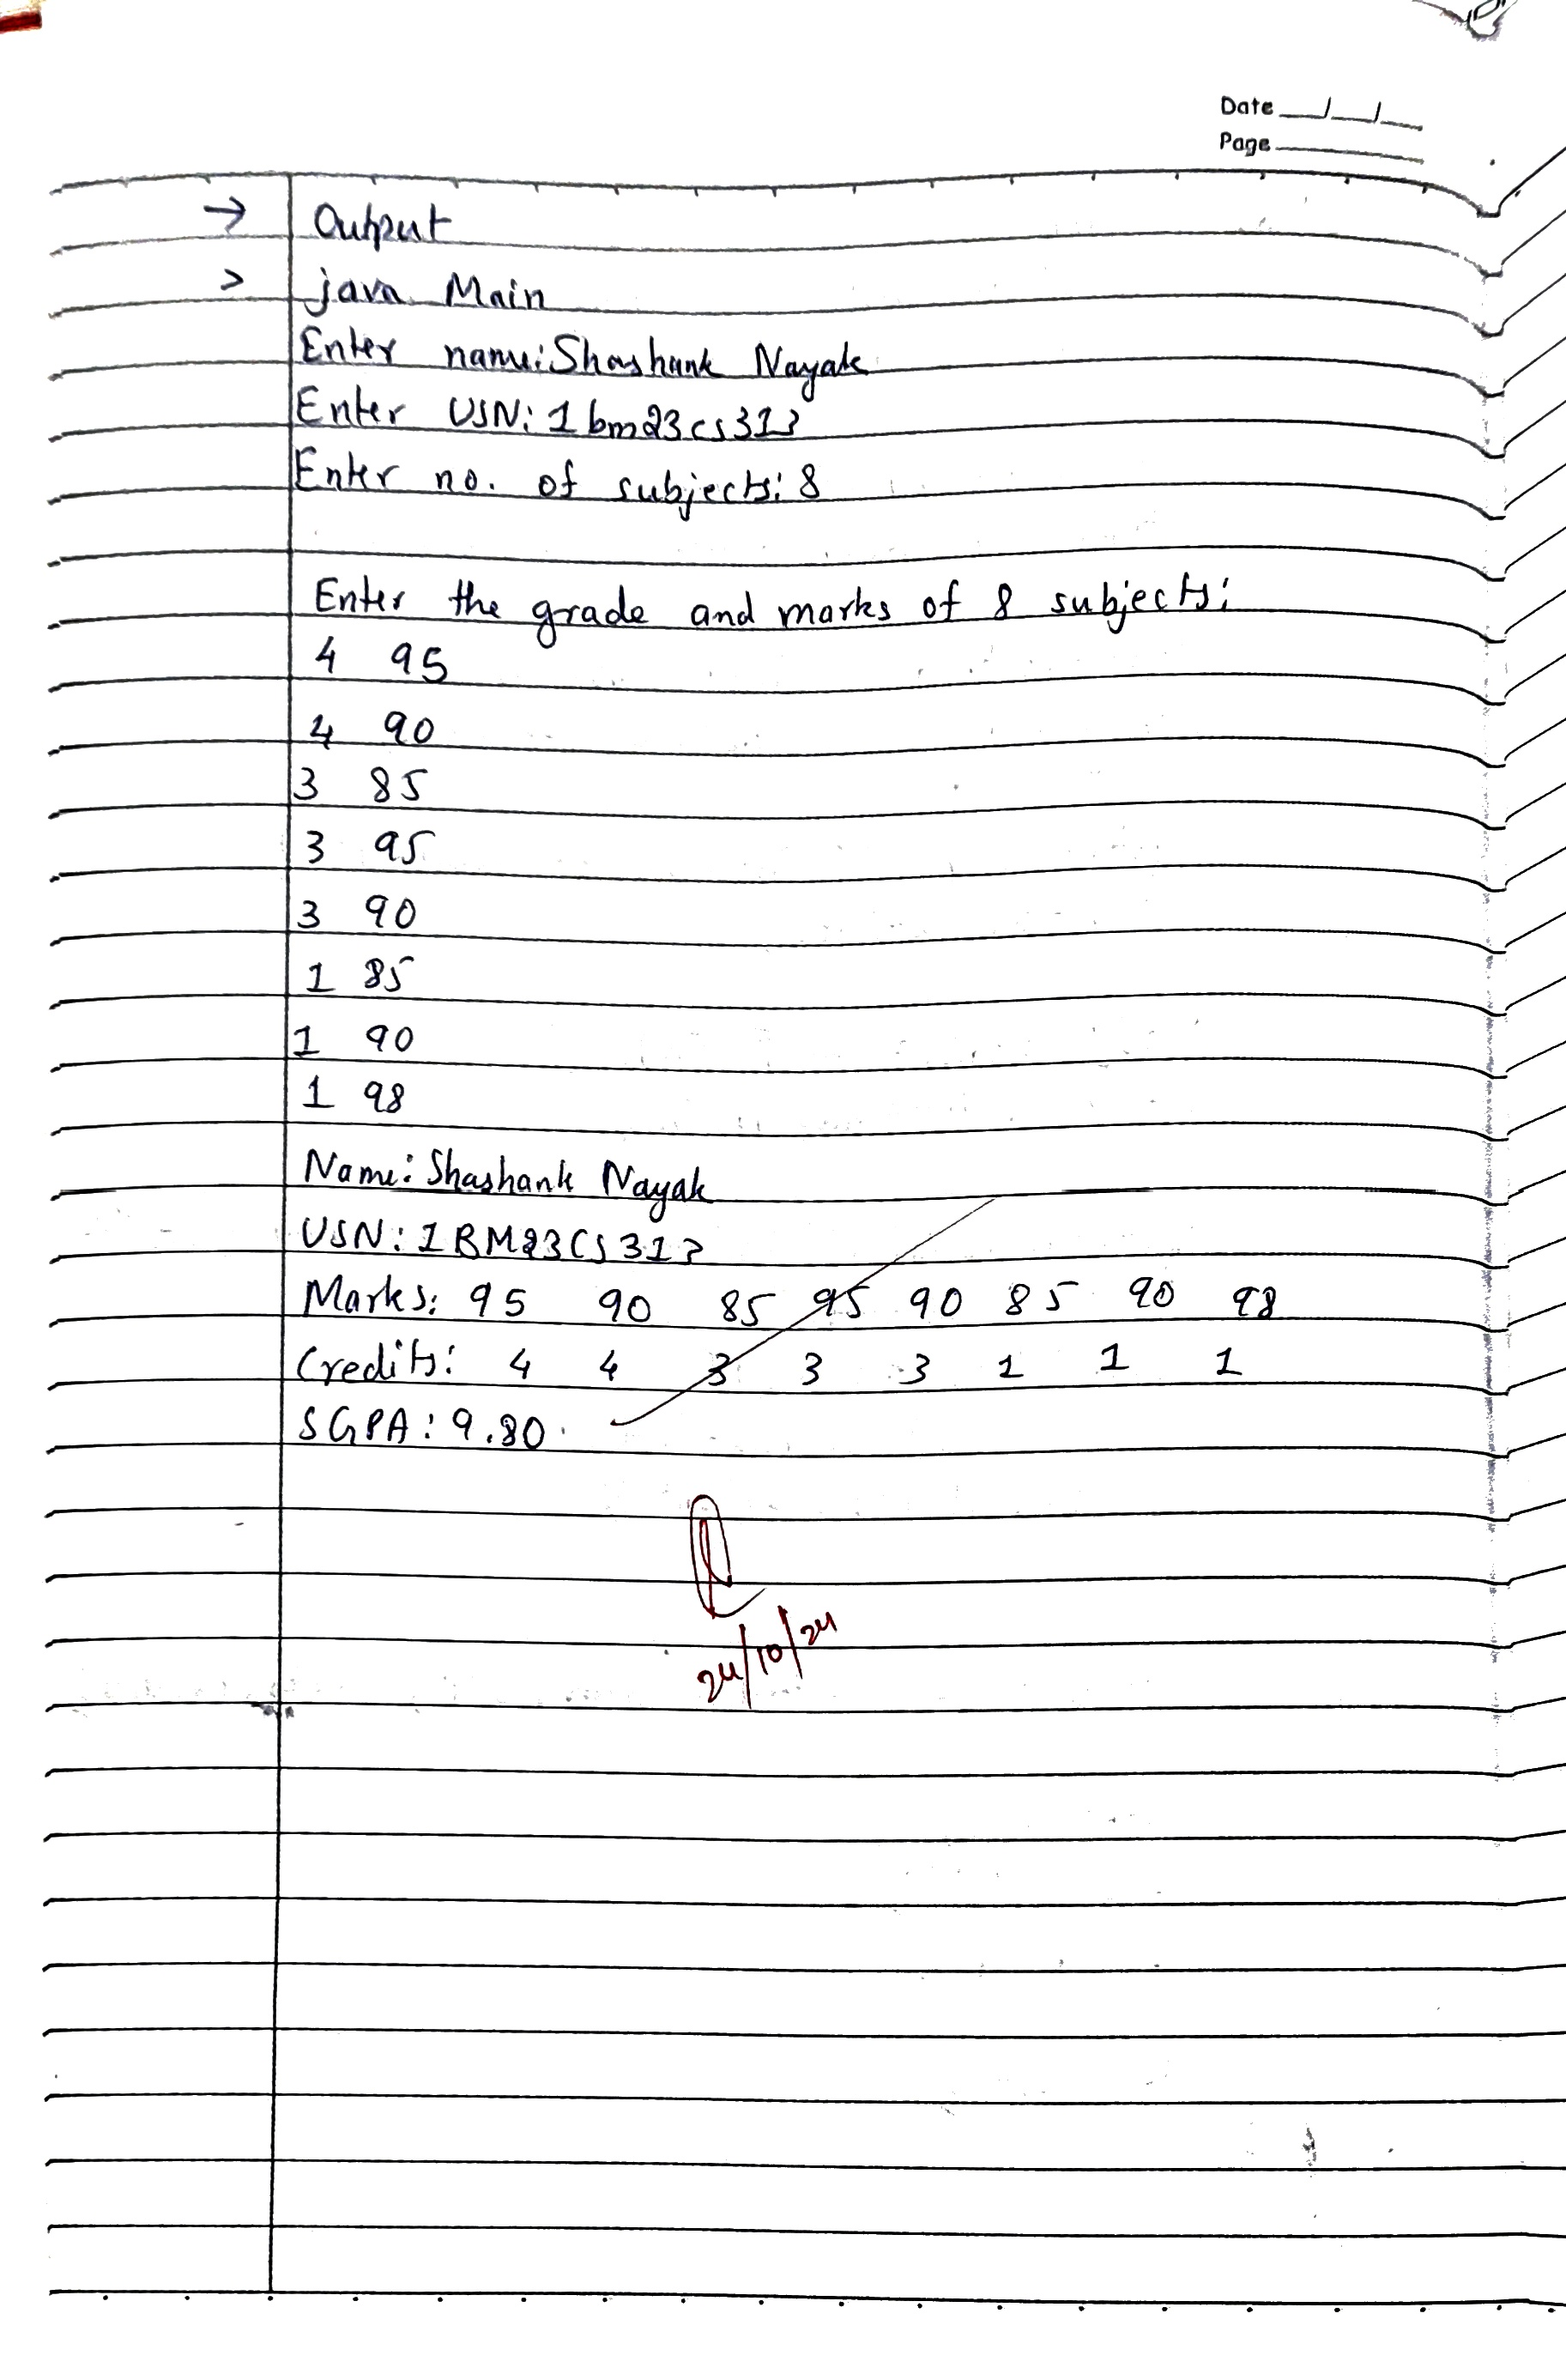 Date __/__/__
Page
→ Output
> java Main
Enter name: Shashank Nayak
Enter USN: 1bm23cs313
Enter no. of subjects: 8
Enter the grade and marks of 8 subjects:
4 95
4 90
3 85
3 95
3 90
1 85
1 90
1 98
Name: Shashank Nayak
USN: 1BM23CS313
Marks: 95 90 85 95 90 85 90 98
Credits: 4 4 3 3 3 1 1 1
SGPA: 9.80
24/10/24